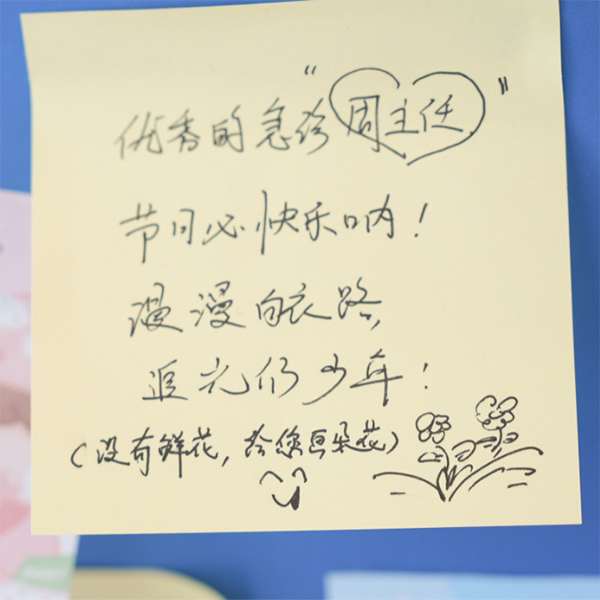 优秀的急诊“周主任”
节日必快乐呐！
漫漫白衣路，
追光仍少年！
（没有鲜花，给您画朵花）